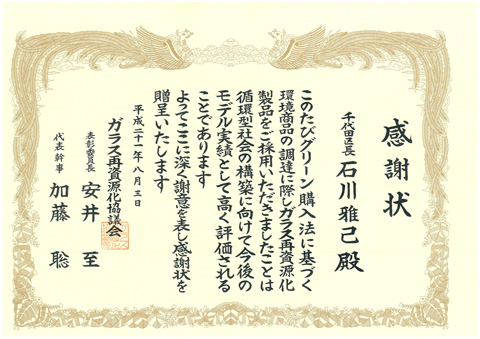 感謝状
千代田区長 石川雅己殿
このたびグリーン購入法に基づく
環境商品の調達に際しガラス再資源化
製品をご採用いただきましたことは
循環型社会の構築に向けて今後の
モデル実績として高く評価される
ことであります
よってここに深く謝意を表し感謝状を
贈呈いたします
平成二十一年八月三日
ガラス再資源化協議会
表彰委員長 安井至
代表幹事 加藤聡